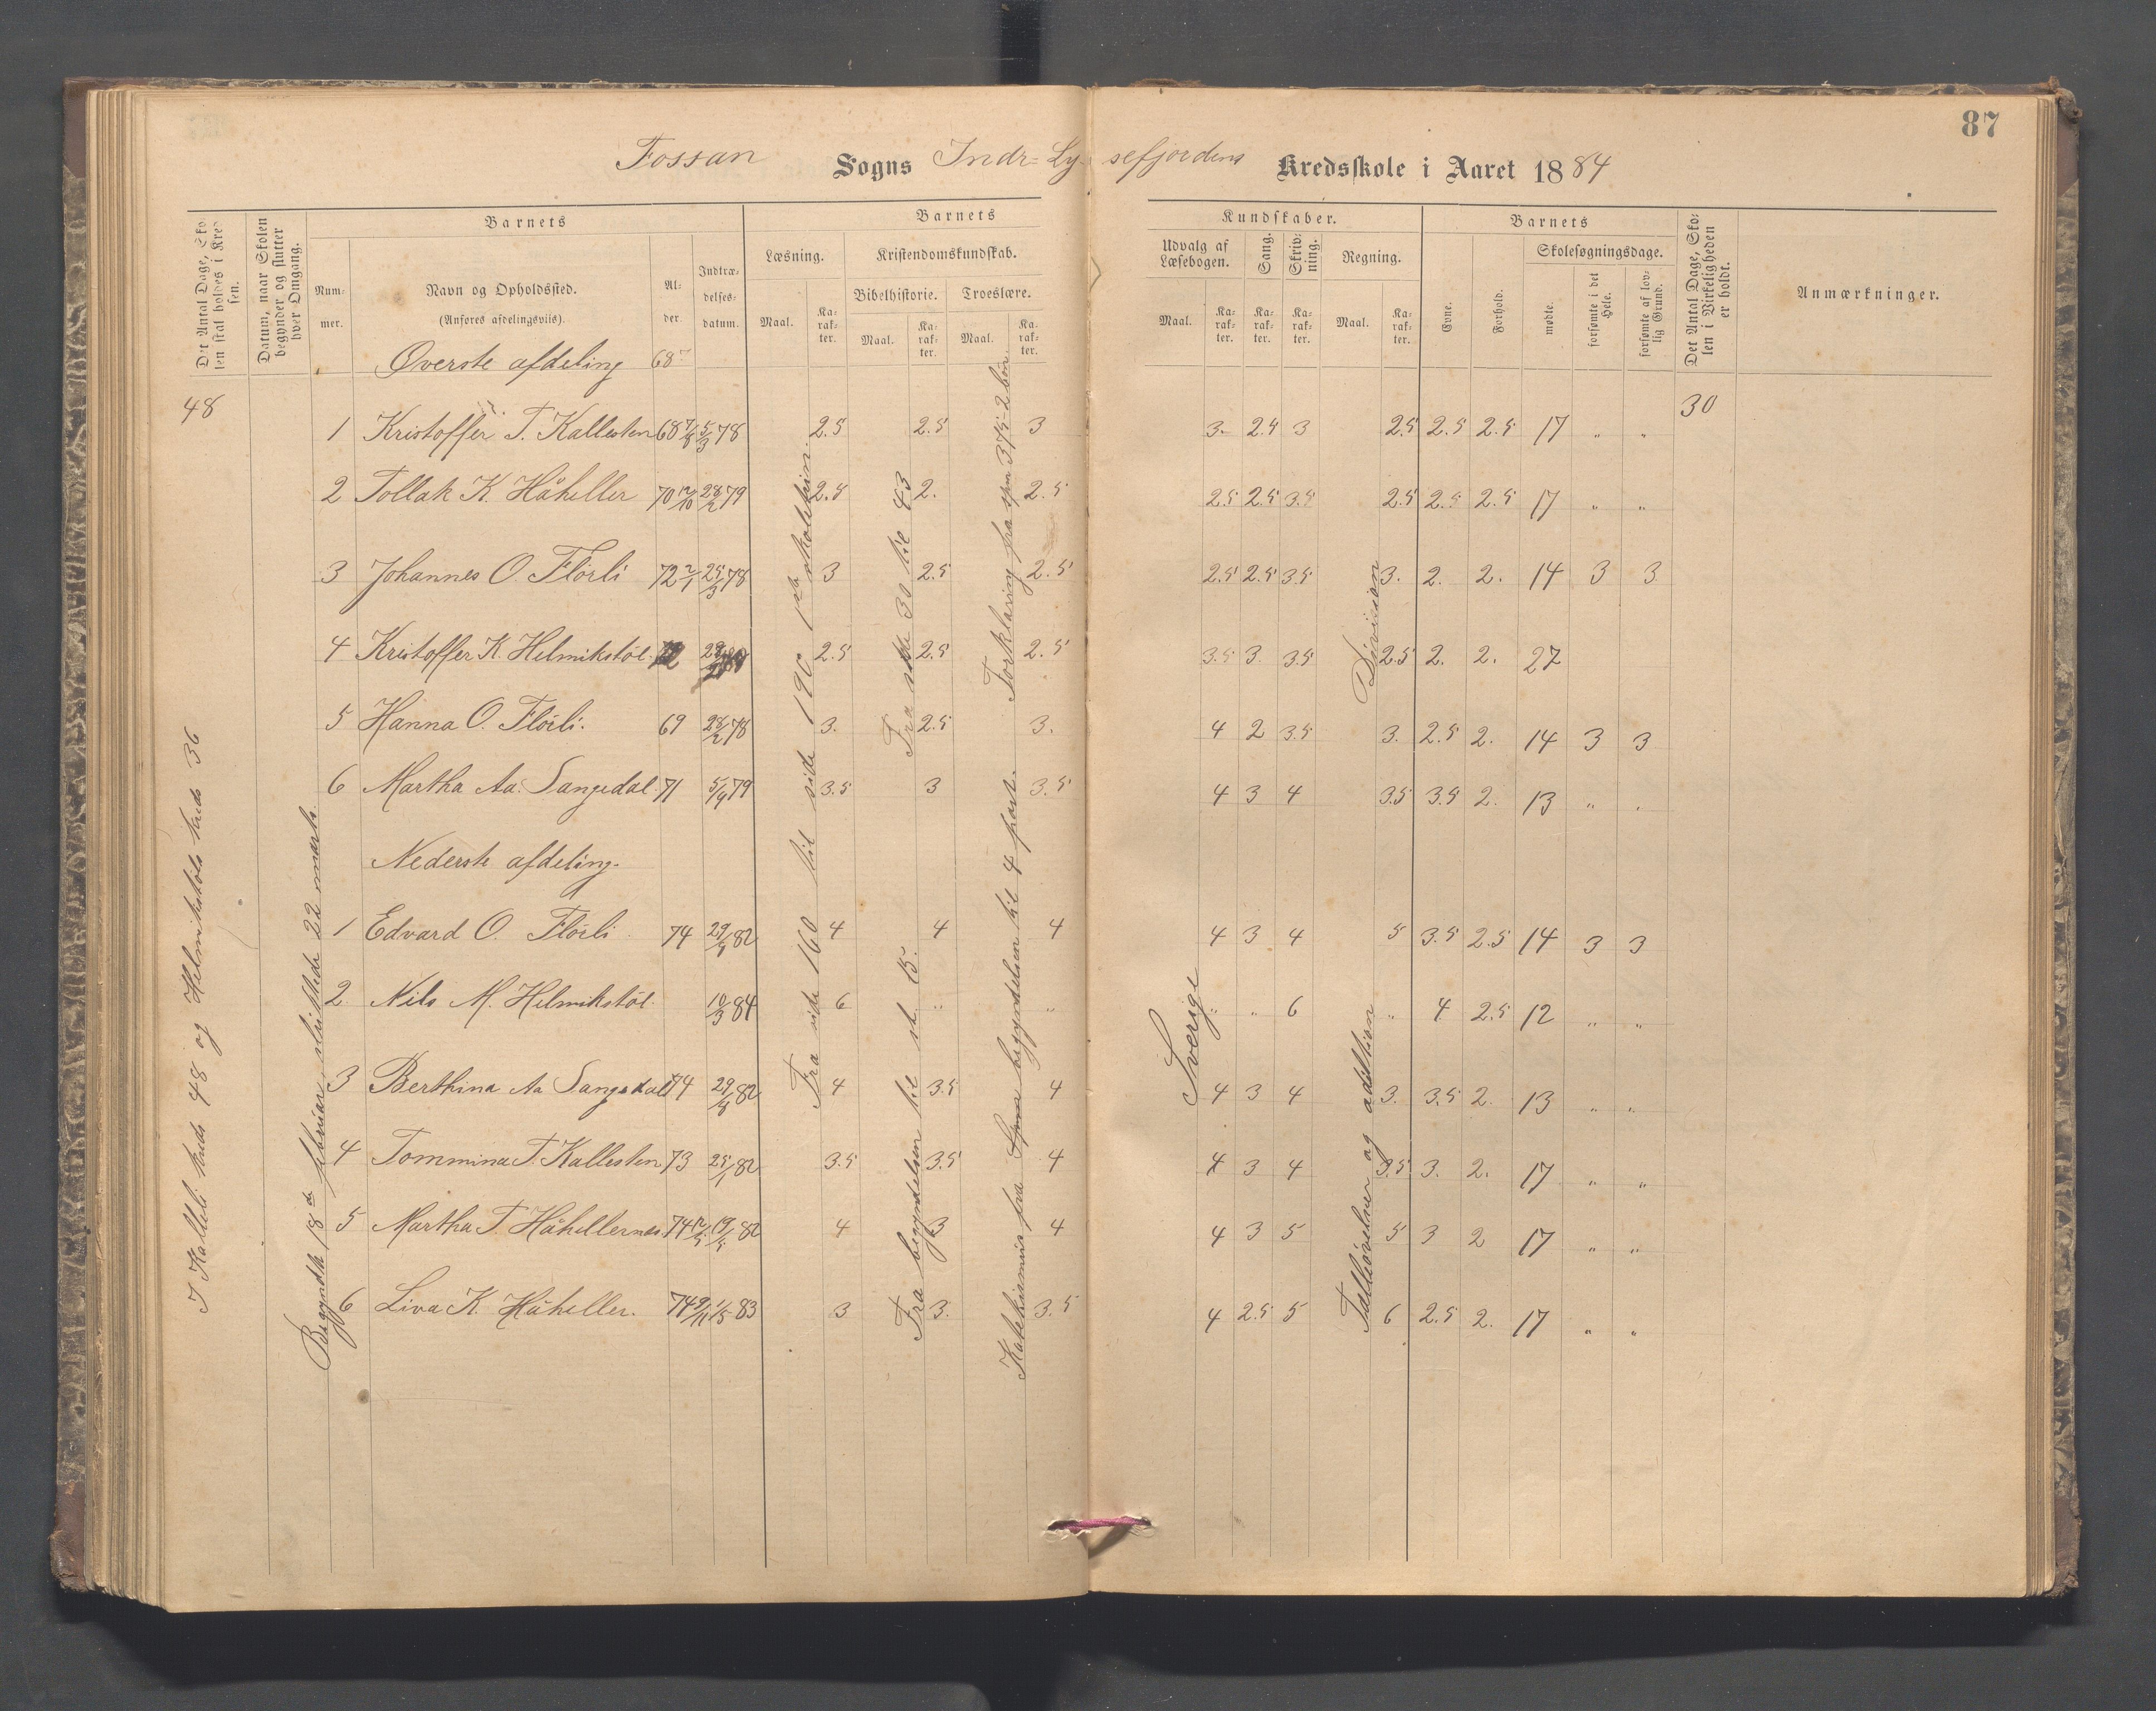 87
Fossan Sogns Indr- Lysefjordens Kredsskole i Aaret 1884
Det Antal Dage, Skolen skal holdes i Kredsen.
Datum, naar Skolen begynder og slutter hver Omgang.
Barnets
Nummer.
Navn og Opholdssted.
(Anføres afdelingsviis).
Alder.
Indtrædelsesdatum.
Barnets Kundskaber.
Læsning.
Maal. Karakter.
Kristendomskundskab.
Bibelhistorie. Troeslære.
Maal. Karakter. Maal. Karakter.
Udvalg af Læsebogen.
Maal. Karakter.
Sang.
Karakter.
Skrivning.
Karakter.
Regning.
Maal. Karakter.
Barnets
Evne.
Forhold.
Skolesøgningsdage.
mødte.
forsømte i det Hele.
forsømte af lovlig Grund.
Det Antal Dage, Skolen i Virkeligheden er holdt.
Anmærkninger.
Øverste afdeling 68
48 30
1 Kristoffer T. Kallesten 68 5/3 78 2.5 2.5 3 3. 2.5 3 2.5 2.5 2.5 17 " "
2 Tollak K. Håheller 70 28/2 79 2.5 2. 2.5 2.5 2.5 3.5 2.5 2.5 2.5 17 " "
3 Johannes O. Flörli 72 2/1 25/3 78 3 2.5 2.5 2.5 2.5 3.5 3. 2. 2. 14 3 3
4 Kristoffer K. Helmikstöl 2.5 2.5 2.5 3.5 3. 3.5 2.5 2. 2. 27
5 Hanna O. Flörli. 69 28/2 78 3. 2.5 3. 4 2 3.5 3. 2.5 2. 14 3 3
6 Martha Aa. Sangedal. 71 5/9 79 3.5 3 3.5 4 3 4 3.5 3.5 2. 13 " "
Nederste afdeling.
1 Edvard O. Flörli 74 82 4 4 4 4 3 4 5 3.5 2.5 14 3 3
2. Nils M. Helmikstöl. 10/3 84 6 " " " " 6 " 4 2.5 12 " "
3 Berthina Aa Sangedal 74 82 4 3.5 4 4 3 4 3. 3.5 2. 13 " "
4 Tommina T. Kallesten 73 25/1 82 3.5 3.5 4 4 3 4 3.5 3. 2. 17 " "
5 Martha T. Håhellernes 74 82 4 3 4 4 3 5 5 3 2 17 " "
6 Liva K. Håheller. 74 9/11 1/5 83 3 3. 3.5 4 2.5 5 6 2.5 2. 17 " "
I Kalleli kreds 48 og Helmikstöls kreds 36
Begyndte 18de februar sluttede 22 marts.
Fra side 160 til side 190 1ste skoletrin.
Fra stk 30 til 43
Fra begyndelsen til st. 15.
Forklaring fra spm 375 - 2 bön
Katekismus fra begyndelsen til 4 part.
Sverige
Division
Tælleövelser og addition